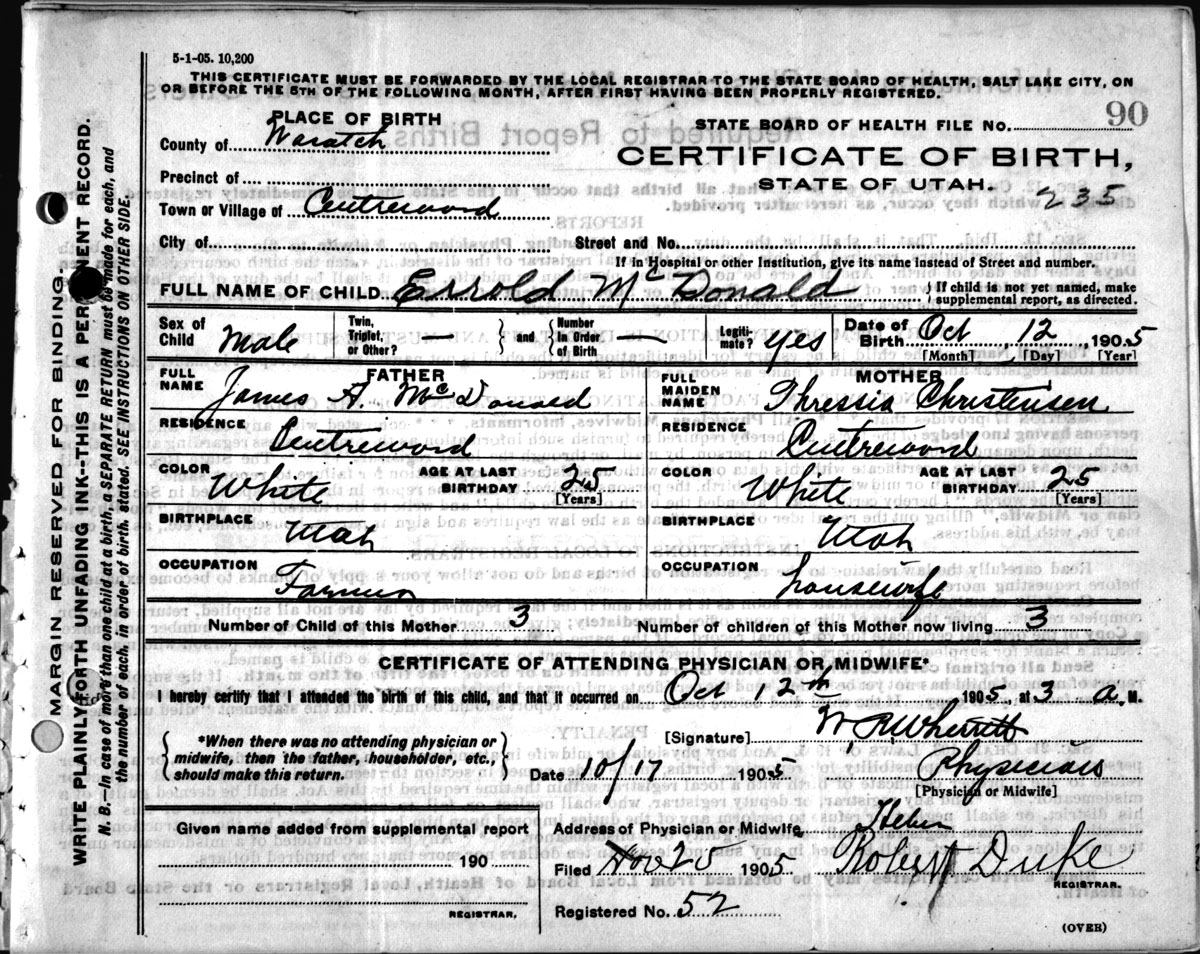 5-1-05. 10,200
THIS CERTIFICATE MUST BE FORWARDED BY THE LOCAL REGISTRAR TO THE STATE BOARD OF HEALTH, SALT LAKE CITY, ON
OR BEFORE THE 5TH OF THE FOLLOWING MONTH, AFTER FIRST HAVING BEEN PROPERLY REGISTERED.
PLACE OF BIRTH
STATE BOARD OF HEALTH FILE NO. 90
County of Wasatch
CERTIFICATE OF BIRTH,
Precinct of
STATE OF UTAH.
235
Town or Village of Centreword
City of Street and No.
If in Hospital or other Institution, give its name instead of Street and number.
FULL NAME OF CHILD Errold McDonald { If child is not yet named, make
supplemental report, as directed.
Sex of Child Male Twin, Triplet, or Other? — } and { Number in Order of Birth — Legiti-mate? Yes Date of Birth Oct 12 1905
[Month] [Day] [Year]
FATHER
FULL NAME James A. McDonald
RESIDENCE Centreword
COLOR White AGE AT LAST BIRTHDAY 25 [Years]
BIRTHPLACE Utah
OCCUPATION Farmer
MOTHER
FULL MAIDEN NAME Thressia Christensen
RESIDENCE Centreword
COLOR White AGE AT LAST BIRTHDAY 25 [Years]
BIRTHPLACE Utah
OCCUPATION housewife
Number of Child of this Mother 3 Number of children of this Mother now living 3
CERTIFICATE OF ATTENDING PHYSICIAN OR MIDWIFE*
I hereby certify that I attended the birth of this child, and that it occurred on Oct 12th 1905 at 3 a. M.
{ *When there was no attending physician or
midwife, then the father, householder, etc.,
should make this return. }
[Signature] W R Wherritt
Date 10/17 1905 Physician
[Physician or Midwife]
Given name added from supplemental report
190
REGISTRAR.
Address of Physician or Midwife Heber
Filed Nov 25 1905 Robert Duke
REGISTRAR.
Registered No. 52
(OVER)
MARGIN RESERVED FOR BINDING.
WRITE PLAINLY FORTH UNFADING INK--THIS IS A PERMANENT RECORD.
N. B.—In case of more than one child at a birth, a SEPARATE RETURN must be made for each, and
the number of each, in order of birth, stated. SEE INSTRUCTIONS ON OTHER SIDE.